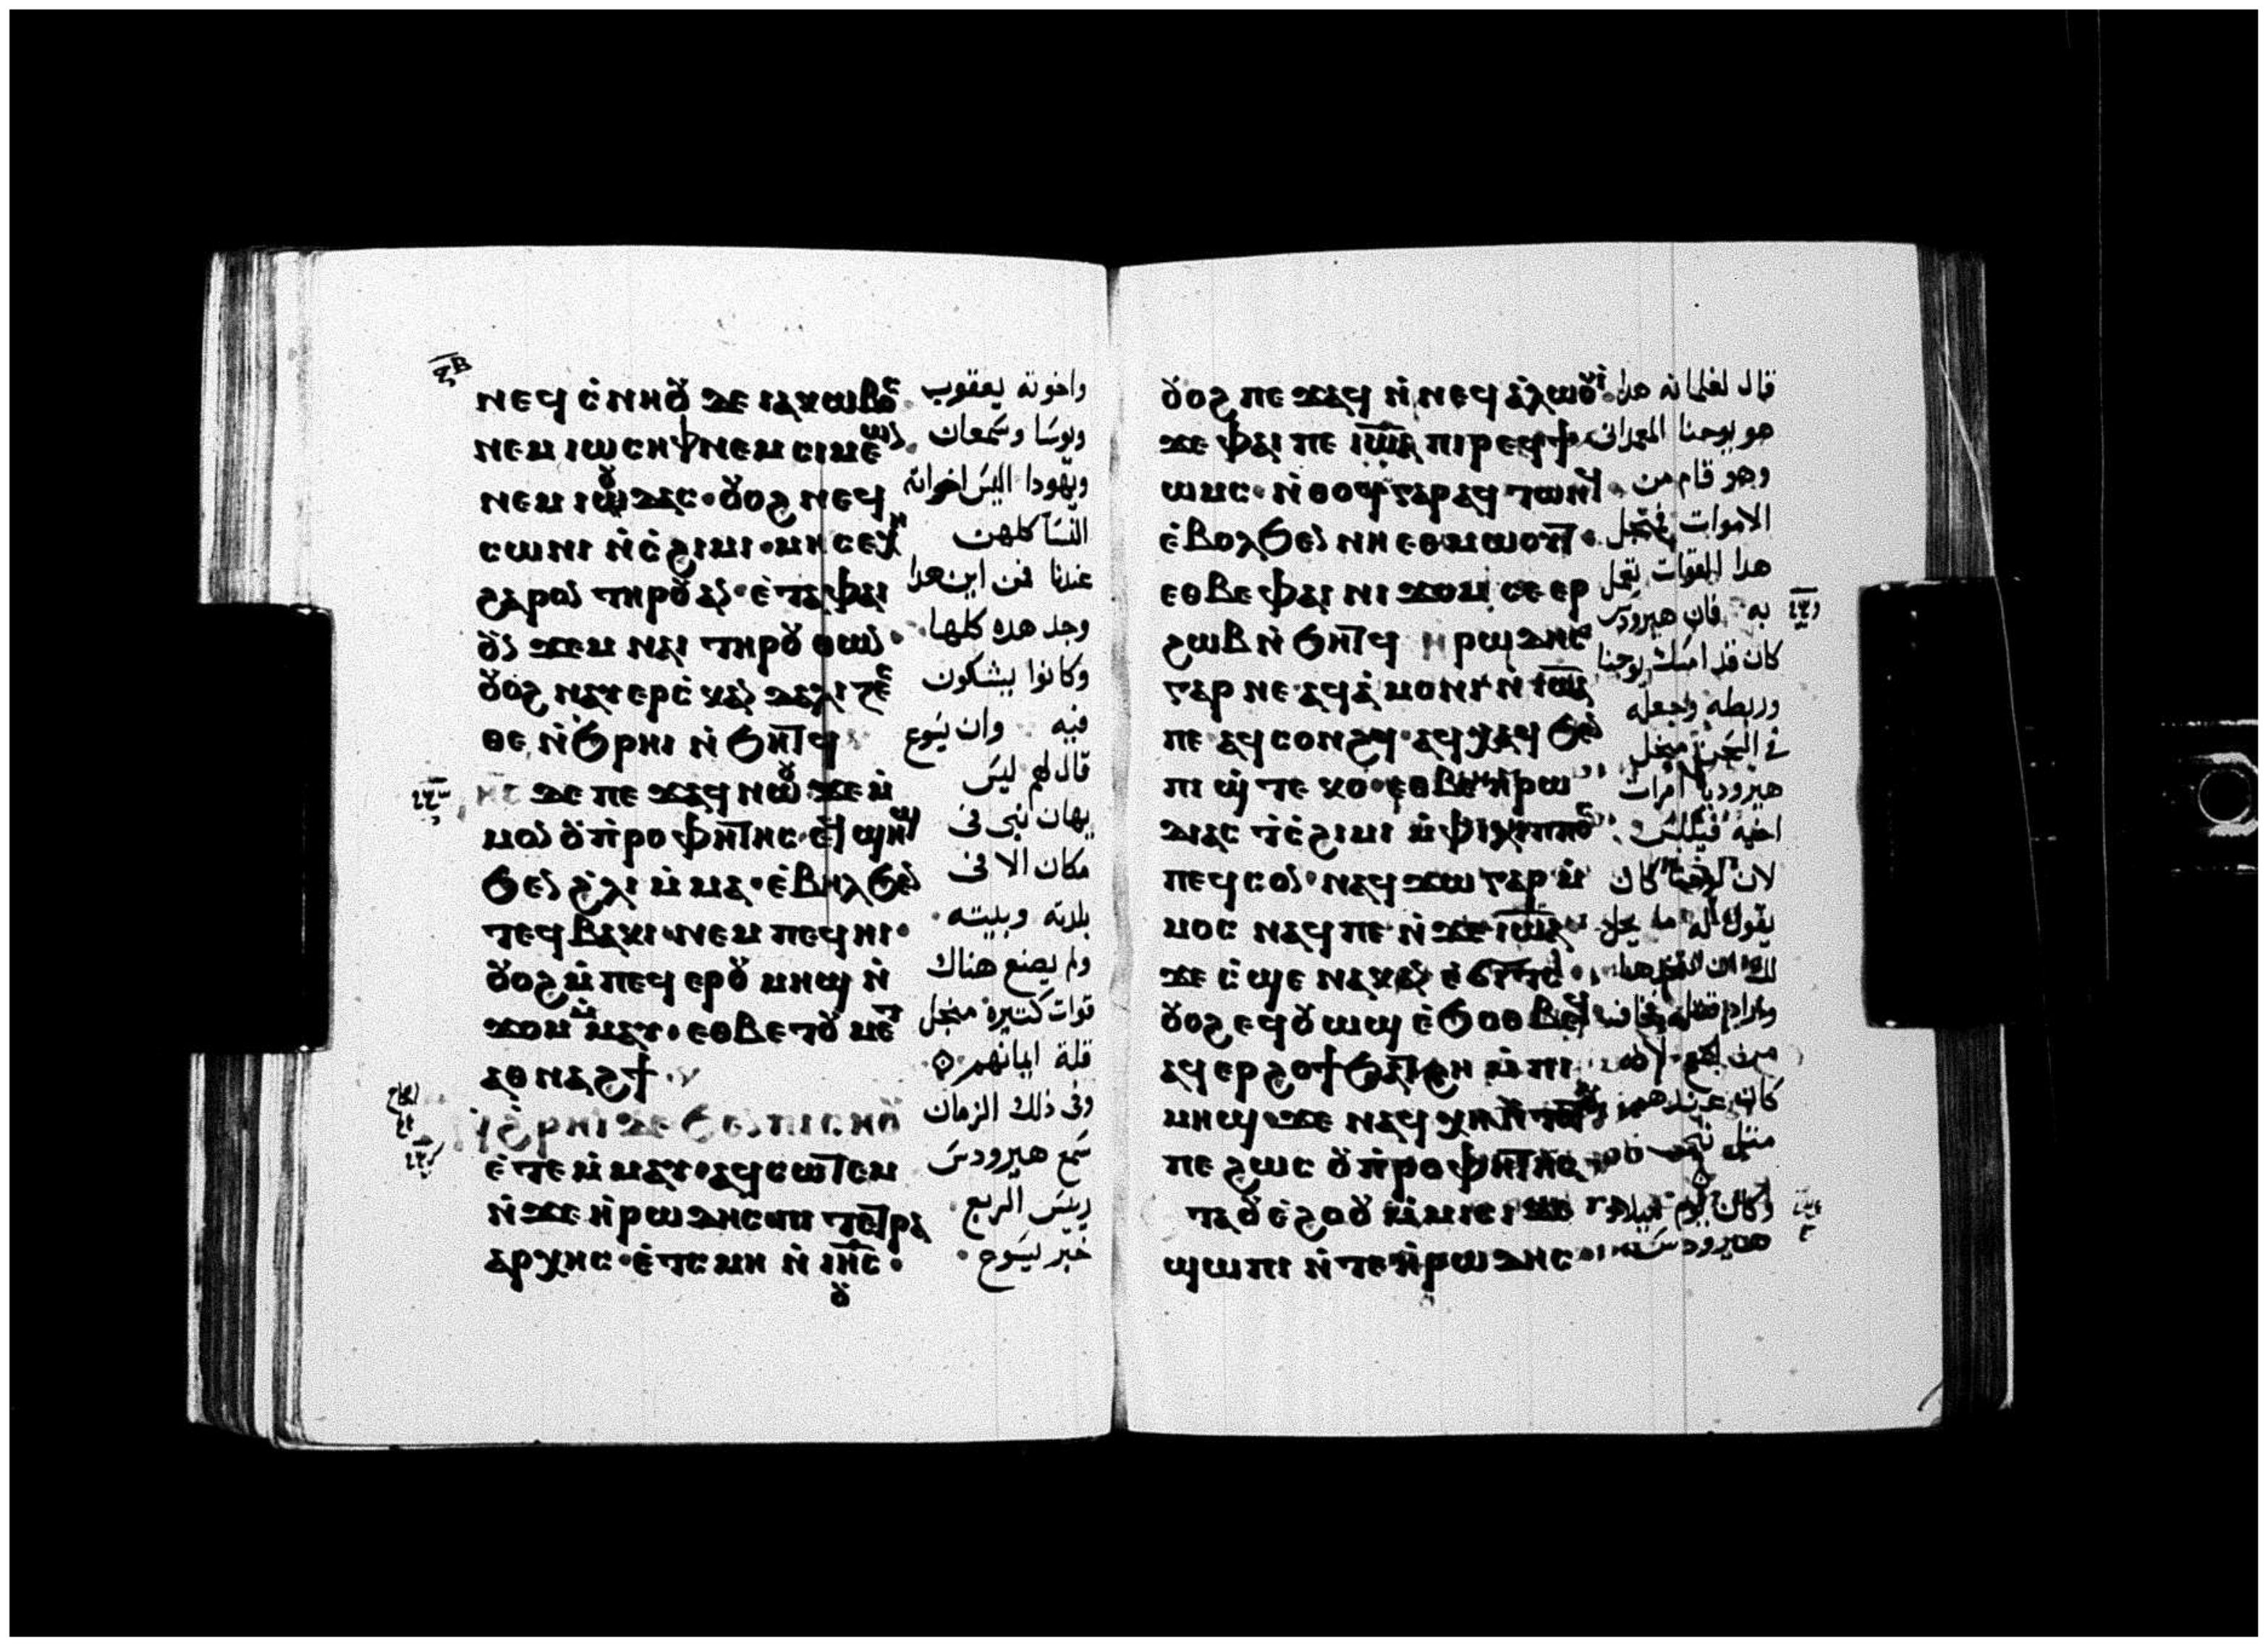 ⲝⲃ
ⲛⲉϥ ⲥ̇ⲛⲏⲟⲩ ϫⲉ ⲓⲁⲕⲱⲃⲟⲥ
ⲛⲉⲙ ⲓⲱⲥⲏⲫ ⲛⲉⲙ ⲥⲓⲙⲉⲱⲛ
ⲛⲉⲙ ⲓⲟⲩⲇⲁⲥ· ⲟⲩⲟϩ ⲛⲉϥ
ⲥⲱⲛⲓ ⲛ̇ⲥ̇ϩⲓⲙⲓ· ⲙⲏ ⲥⲉⲭⲏ
ϩⲁⲣⲟⲛ ⲧⲏⲣⲟⲩ ⲁⲛ· ⲉ̇ⲧⲁ ⲫⲁⲓ
ⲟⲩⲛ ϫⲉⲙ ⲛⲁⲓ ⲧⲏⲣⲟⲩ ⲑⲱⲛ·
ⲟⲩⲟϩ ⲛⲁⲩⲉⲣⲥ̇ⲕⲁⲛⲇⲁⲗⲓⲍⲉⲥ
ⲑⲉ ⲛ̇ϧⲣⲏⲓ ⲛ̇ϧⲏⲧϥ
ⲓⲏⲥ ϫⲉ ⲡⲉ ϫⲁϥ ⲛⲱⲟⲩ ϫⲉ ⲙ̇
ⲙⲟⲛ ⲟⲩⲡ̇ⲣⲟⲫⲏⲧⲏⲥ· ⲉϥϣⲏϣ
ϧⲉⲛ ϩ̇ⲗⲓ ⲙ̇ⲙⲁ· ⲉ̇ⲃⲏⲗ ϧⲉⲛ
ⲧⲉϥ ⲃⲁⲕⲓ· ⲛⲉⲙ ⲡⲉϥⲏⲓ·
ⲟⲩⲟϩ ⲙ̇ⲡⲉϥ ⲉⲣⲟⲩ ⲙⲏϣ ⲛ̇
ϫⲟⲙ ⲙ̇ⲙⲁⲩ· ⲉⲑⲃⲉ ⲧⲟⲩ ⲙⲉⲧ
ⲁⲑⲛⲁϩϯ·
ⲛ̇ϩ̇ⲣⲏⲓ ⲇⲉ ϧⲉⲛ ⲡⲓⲥⲏⲟⲩ
ⲉ̇ⲧⲉ ⲙ̇ⲙⲁⲩ· ⲁϥⲥⲱⲧⲉⲙ
ⲛ̇ϫⲉ ⲏ̇ⲣⲱⲇⲏⲥ ⲡⲓ ⲧⲉⲧⲣⲁ
ⲁⲣⲭⲏⲥ· ⲉ̇ⲧⲥⲙⲏ ⲛ̇ ⲓⲏⲥ·
ⲟⲩ
واخوته يعقوب
ويوسا وسمعان
ويهودا اليس اخواته
النسا كلهن
عندنا فمن اين هدا
وجد هده كلها·
وكانوا يشكون
فيه وان يسوع
قال لهم ليس
يهان نبى فى
مكان الا فى
بلدته وبيته·
ولم يصنع هناك
قوات كتيرة منجل
قلة ايمانهم
وفى ذلك الزمان
سمع هيرودس
رييس الربع
خبر يسوع·
ⲟⲩⲟϩ ⲡⲉ ϫⲁϥ ⲛ̇ⲛⲉϥ ⲁ̇ⲗⲱⲟⲩⲓ̇·
ϫⲉ ⲫⲁⲓ ⲡⲉ ⲓⲱⲁ ⲡⲓⲣⲉϥϯ
ⲱⲙⲥ· ⲛ̇ⲑⲟϥ ⲅⲁⲣ ⲁϥ ⲧⲱⲛϥ·
ⲉ̇ⲃⲟⲗ ϧⲉⲛ ⲛⲏⲉⲑⲙⲱⲟⲩⲧ·
ⲉⲑⲃⲉ ⲫⲁⲓ ⲛⲓ ϫⲟⲙ ⲥⲉ ⲉⲣ
ϩⲱⲃ ⲛ̇ϧⲏⲧϥ ⲏⲣⲱⲇⲏⲥ
ⲅⲁⲣ ⲛⲉ ⲁϥⲁ̇ⲙⲟⲛⲓ ⲛ̇ ⲓⲱⲁ
ⲡⲉ ⲁϥⲥⲟⲛϩϥ· ⲁϥϩⲓⲧϥ ϧⲉⲛ
ⲡⲓ ϣ̇ⲧⲉ ⲕⲟ· ⲉⲑⲃⲉ ⲏ̇ⲣⲱ
ⲇⲓⲁⲥ ⲧ̇ⲥ̇ϩⲓⲙⲓ ⲙ̇ⲫⲓⲗⲓⲡⲡⲟⲥ
ⲡⲉϥⲥⲟⲛ· ⲛⲁϥϫⲱ ⲅⲁⲣ ⲙ̇
ⲙⲟⲥ ⲛⲁϥ ⲡⲉ ⲛ̇ϫⲉ ⲓⲱⲁ
ϫⲉ ⲥ̇ϣⲉ ⲛⲁⲕ ⲁⲛ ⲉ̇ϭⲓⲧⲥ·
ⲟⲩⲟϩ ⲉϥⲟⲩⲱϣ ⲉ̇ϧⲟⲑⲃⲉϥ
ⲁϥⲉⲣϩⲟϯ ϧⲁⲧϩⲏ ⲙ̇ⲡⲓ
ⲙⲏϣ· ϫⲉ ⲛⲁϥ ⲭⲏ ⲛ̇ⲧⲟⲧⲟⲩ
ⲡⲉ ϩⲱⲥ ⲟⲩⲡ̇ⲣⲟⲫⲏⲧⲏⲥ
ⲉⲧⲁ ⲟⲩⲉ̇ϩⲟⲟⲩ ⲙ̇ⲙⲓⲥⲓ ⲇⲉ
ϣⲱⲡⲓ ⲛ̇ⲧⲉ ⲏ̇ⲣⲱⲇⲏⲥ
قال لغلمانه هدا
هو يوحنا المعمدان
وهو قام من
الاموات فمنجل
هدا القوات تعمل
به فان هيرودس
كان قد امسك يوحنا
وربطه وجعله
فى السجن منجل
هيروديا امرات
اخيه فيلبس
لان يوحنا كان
يقول له ما يحل
وكان يوم ميلاد
هيرودس